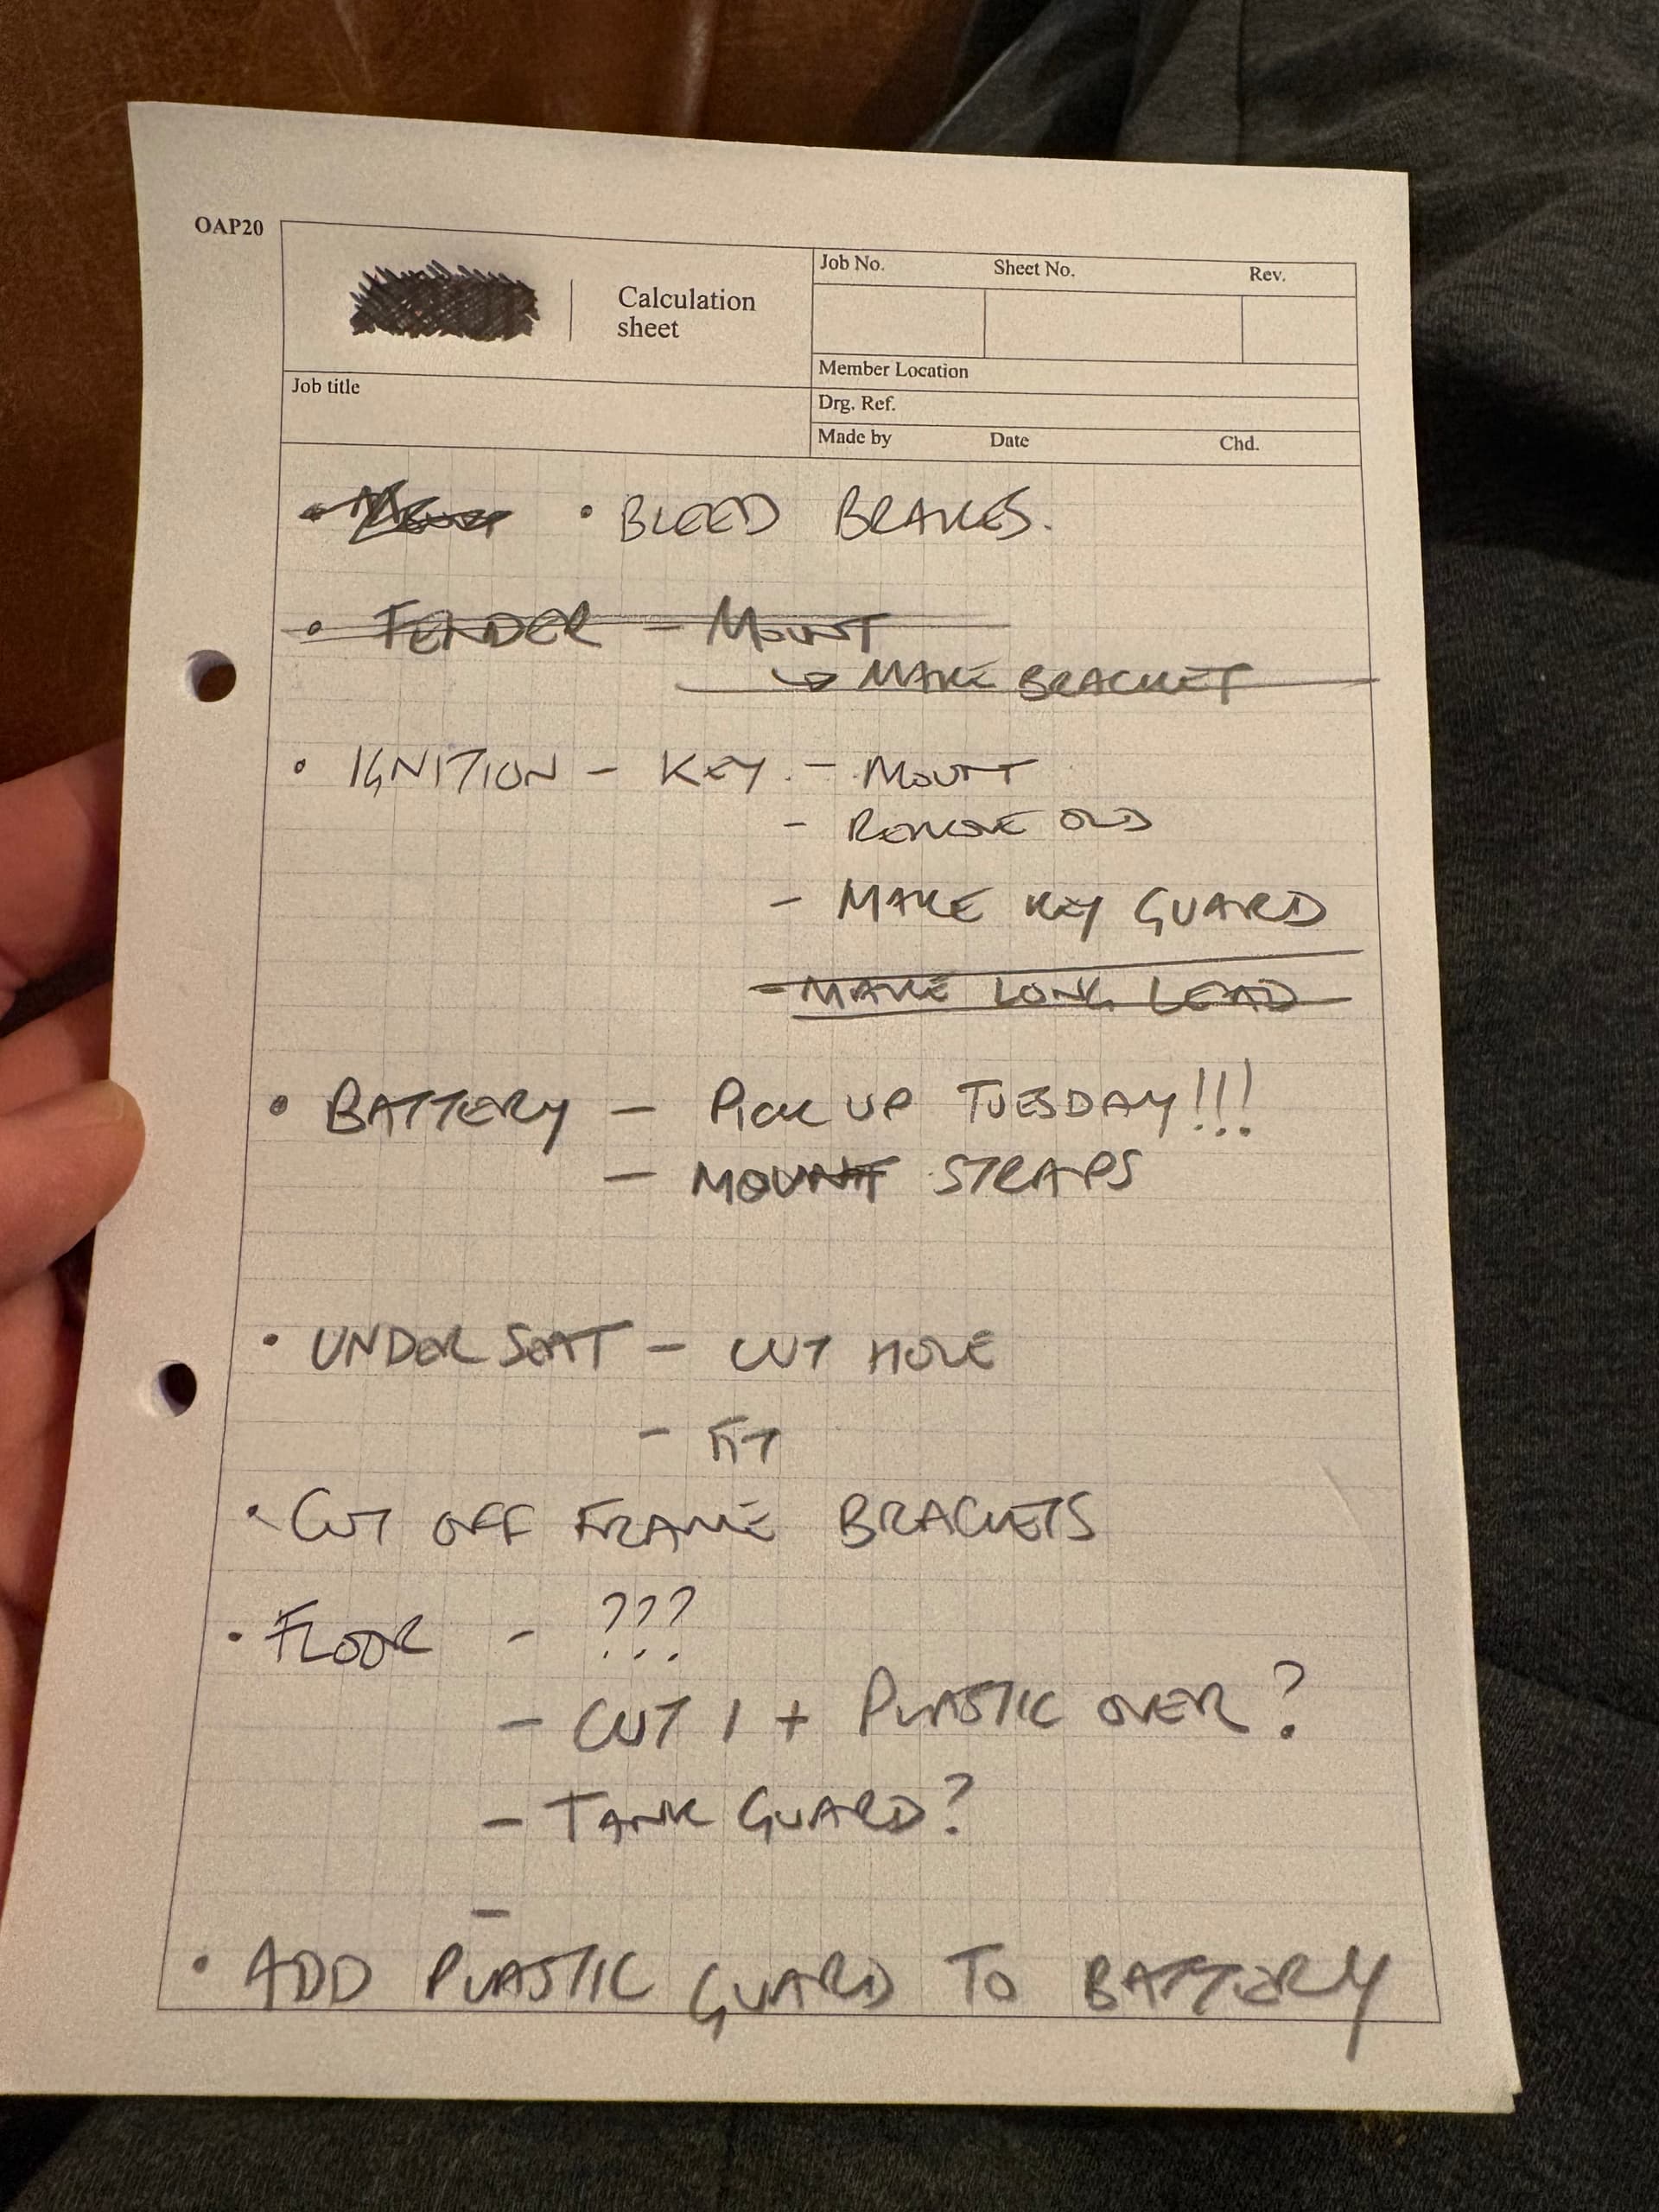 OAP20
Calculation
sheet
Job No. Sheet No. Rev.
Member Location
Job title
Drg. Ref.
Made by Date Chd.
• • BLEED BRAKES.
• FENDER - MOUNT
↳ MAKE BRACKET
• IGNITION - KEY - MOUNT
- REMOVE OLD
- MAKE KEY GUARD
- MAKE LONG LEAD
• BATTERY - PICK UP TUESDAY!!!
- MOUNT STRAPS
• UNDER SEAT - CUT HOLE
- FIT
• CUT OFF FRAME BRACKETS
• FLOOR - ???
- CUT 1 + PLASTIC OVER?
- TANK GUARD?
-
• ADD PLASTIC GUARD TO BATTERY